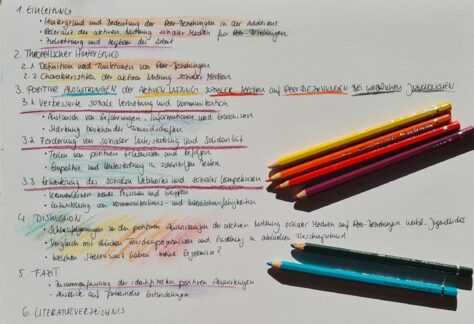 1. EINLEITUNG
• Hintergrund und Bedeutung der Peer-Beziehungen in der Adoleszenz
• Relevanz der aktiven Nutzung sozialer Medien für Peer-Beziehungen
• Zielsetzung und Aufbau der Arbeit
2. THEORETISCHER HINTERGRUND
2.1 Definition und Funktionen von Peer-Beziehungen
2.2 Charakteristika der aktiven Nutzung sozialer Medien
3. POSITIVE AUSWIRKUNGEN der AKTIVEN NUTZUNG SOZIALER MEDIEN auf PEER-BEZIEHUNGEN BEI WEIBLICHEN JUGENDLICHEN
3.1 Verbesserte soziale Vernetzung und Kommunikation
• Austausch von Erfahrungen, Informationen und
• Stärkung bestehender Freundschaften
3.2 Förderung von sozialer Unterstützung und Solidarität
• Teilen von positiven Erlebnissen und Erfolgen
• Empathie und Unterstützung in schwierigen Zeiten
3.3 Erweiterung des sozialen Netzwerks und sozialer Kompetenzen
• Kennenlernen neuer Personen und Gruppen
• Entwicklung von Kommunikations- und
4. DISKUSSION
• Schlussfolgerungen zu den positiven Auswirkungen der aktiven Nutzung sozialer Medien auf Peer-Beziehungen weibl. Jugendlicher
• Vergleich mit ähnlichen Forschungsergebnissen und Einordnung in aktuellen Forschungsstand
• Welchen Stellenwert haben meine Ergebnisse?
5. FAZIT
• Zusammenfassung der identifizierten positiven Auswirkungen
• Ausblick auf potentielle Entwicklungen
6. LITERATURVERZEICHNIS